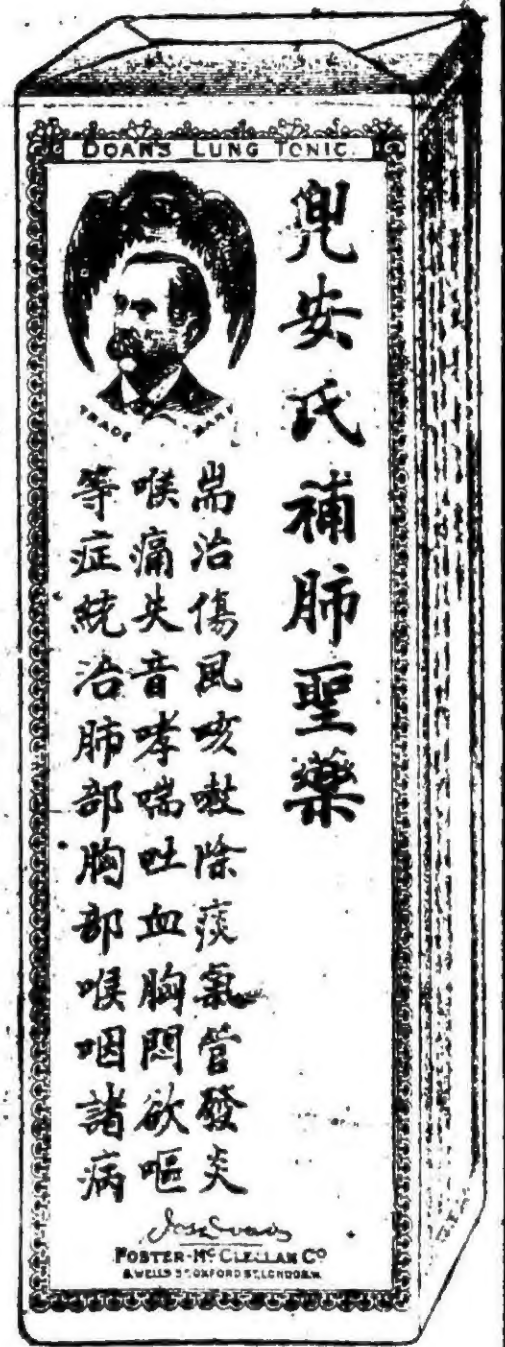 DOAN'S LUNG TONIC.
兜安氏補肺聖藥
TRADE MARK
耑治傷風咳嗽除痰氣管發炎
喉痛失音哮喘吐血胸悶欲嘔
等症統治肺部胸部喉咽諸病
FOSTER-MCCLELLAN CO
8, WELLS ST OXFORD ST, LONDON.W.